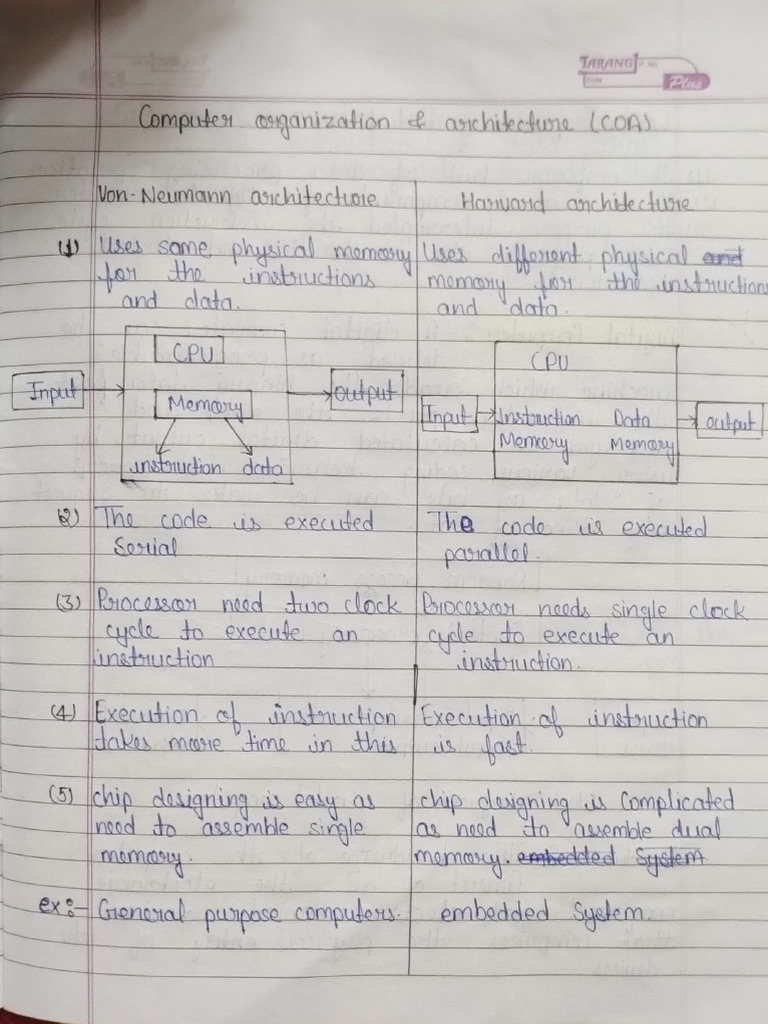 TARANG
Plus
Computer organization & architecture (COA)
Von-Neumann architecture
(1) Uses same physical memory
for the instructions
and data.
CPU
Input
Memory
output
instruction data
(2) The code is executed
Serial
(3) Processor need two clock
cycle to execute an
instruction
(4) Execution of instruction
takes more time in this
(5) chip designing is easy as
need to assemble single
memory.
ex:- General purpose computers.
Harvard architecture
Uses different physical and
memory for the instructions
and data.
CPU
Input
Instruction Data
Memory Memory
output
The code is executed
parallel.
Processor needs single clock
cycle to execute an
instruction.
Execution of instruction
is fast.
chip designing is complicated
as need to assemble dual
memory. embedded System
embedded System.